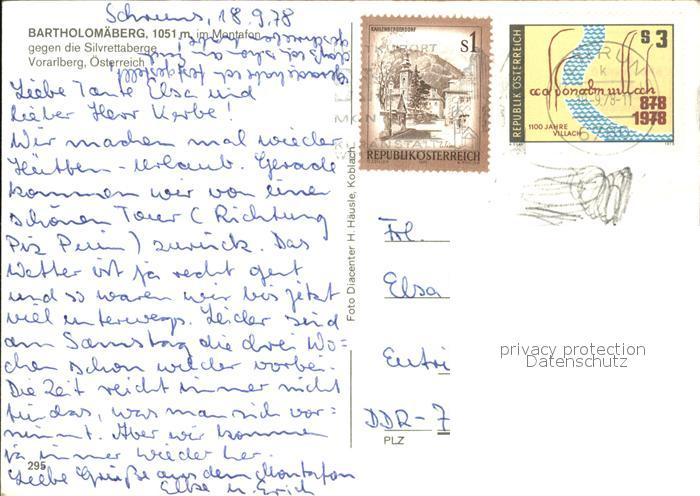 Schruns, 18.9.78
BARTHOLOMÄBERG, 1051 m, im Montafon
gegen die Silvrettaberge
Vorarlberg, Österreich
Liebe Tante Elsa und
lieber Herr Kerbe!
Wir machen mal wieder
Hütten-Urlaub. Gerade
kommen wir von einer
schönen Tour (Richtung
Piz Buin) zurück. Das
Wetter ist ja recht gut
und so waren wir bis jetzt
viel unterwegs. Leider sind
am Samstag die drei Wo=
chen schon wieder vorbei.
Die Zeit reicht immer nicht
für das, was man sich vor=
nimmt. Aber wir kommen
ja immer wieder her.
295
Liebe Grüße aus dem Montafon
Elke u. Erich
Foto Diacenter H. Häusle, Koblach
KAHLENBERGERDORF
S1
REPUBLIK ÖSTERREICH
REPUBLIK ÖSTERREICH
S 3
ad pontem uillach
878
1978
1100 JAHRE
VILLACH
Frl.
Elsa
Eutri
DDR-7
PLZ
privacy protection
Datenschutz